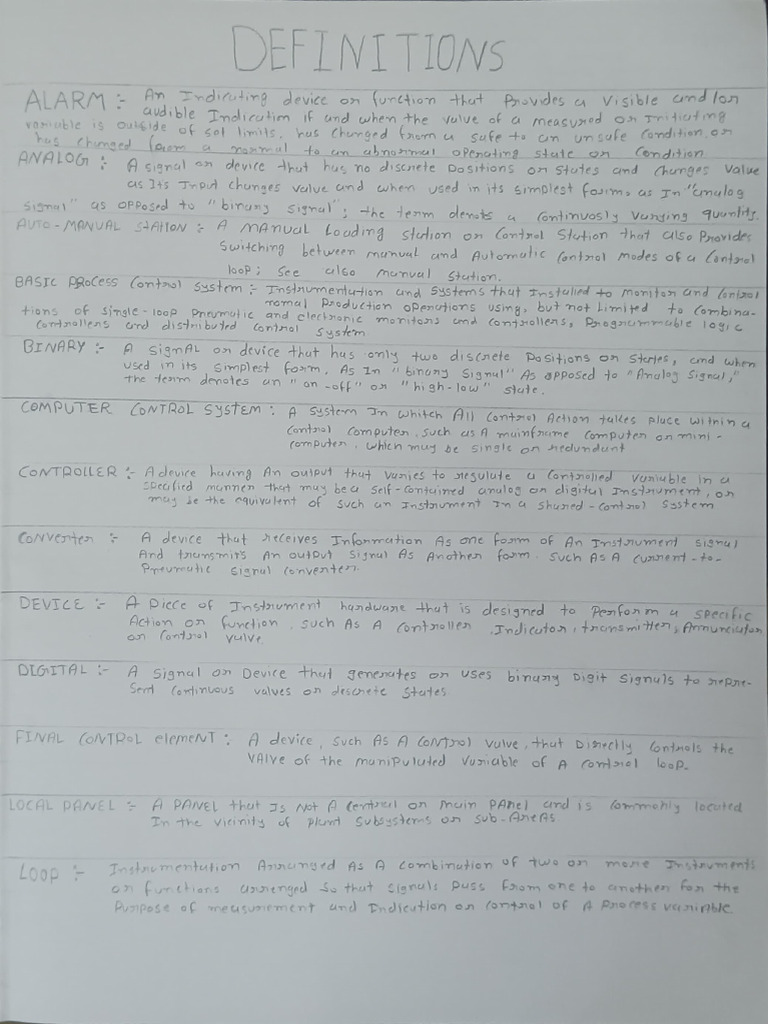 DEFINITIONS
ALARM :- An Indicating device or function that Provides a visible and/or
audible Indication if and when the value of a measured or Initiating
variable is outside of set limits, has changed from a safe to an unsafe Condition, or
has changed from a normal to an abnormal operating state or Condition
ANALOG :- A signal or device that has no discrete Positions or States and changes value
as Its Input changes value and when used in its simplest form, as In "analog
signal" as opposed to "binary signal"; the term denots a Continuosly varying quantity.
AUTO-MANUAL STATION :- A MANUAL Loading Station or Control Station that also Provides
Switching between manual and Automatic Control modes of a Control
loop; see also Manual Station.
BASIC PROCess Control System :- Instrumentation and Systems that Installed to monitor and Control
normal Production operations using, but not Limited to Combina-
tions of single-loop Pneumatic and electronic monitors and Controllers, Programmable logic
Controllers and distributed Control System
BINARY :- A SignAL or device that has only two discrete Positions or States, and when
used in its simplest form. As In "binary Signal" As opposed to "Analog Signal,"
the term denotes an "on-off" or "high-low" state.
COMPUTER CONTROL SYSTEM : A System In whitch All Control Action takes Place within a
Control Computer, such as A mainframe Computer or mini-
Computer, which may be single or redundant
CONTROLLER :- A device having An output that varies to regulate a Controlled variable in a
specified manner that may be a self-contained analog or digital Instrument, or
may be the equivalent of such an Instrument In a shared-control System
Converter :- A device that receives Information As one form of An Instrument signal
And transmits An output Signal As Another form. Such As A Current-to-
Pneumatic Signal Converter.
DEVICE :- A Piece of Instrument hardware that is designed to Perform a Specific
Action or function, such As A Controller, Indicator, transmitter, Annunciator
or Control valve
DIGITAL :- A Signal or Device that generates or uses binary Digit Signals to repre-
sent Continuous values or descrete States
FINAL CONTROL elemeNT : A device, such As A Control valve, that Directly Controls the
VAlve of the manipulated variable of A Control loop.
LOCAL PANEL :- A PANEL that Is Not A Central or main PAnel and is Commonly located
In the vicinity of Plant Subsystems or Sub-AreAs
LOOP :- Instrumentation Arranged As A Combination of two or more Instruments
or functions arrenged so that signals Pass from one to another for the
Purpose of measurement and Indication or Control of A Process variAble